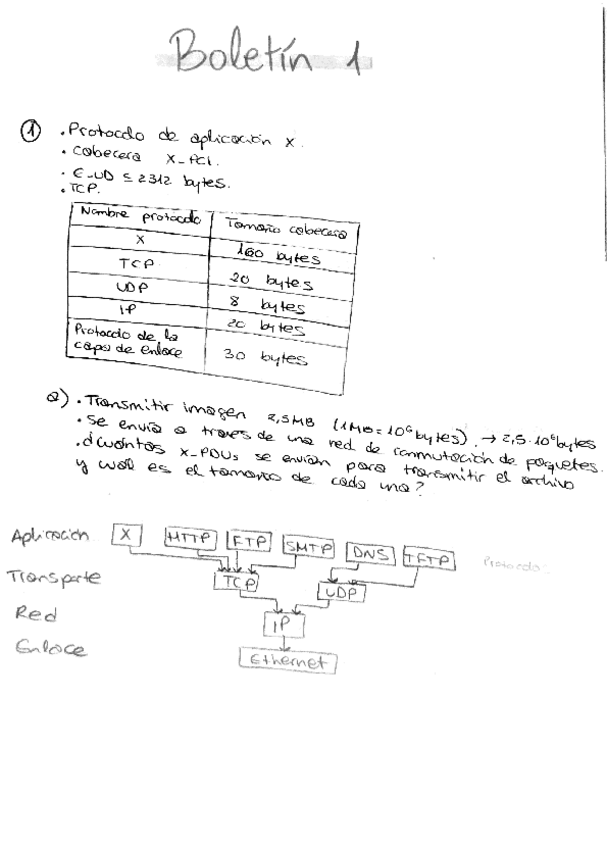 Boletín 1
① . Protocolo de aplicación X.
. Cabecera X_PCI.
. E_UD ≤ 2312 bytes.
. TCP.
Nombre protocolo Tamaño cabecera
X 160 bytes
TCP 20 bytes
UDP 8 bytes
IP 20 bytes
Protocolo de la
capa de enlace 30 bytes
a) . Transmitir imagen 2,5MB (1MB = 10⁶ bytes). → 2,5·10⁶ bytes
. Se envía a través de una red de conmutación de paquetes.
. ¿Cuántos X_PDUs se envían para transmitir el archivo
y cuál es el tamaño de cada una?
Aplicación X HTTP FTP SMTP DNS TFTP
Transporte TCP UDP
Red IP
Enlace Ethernet